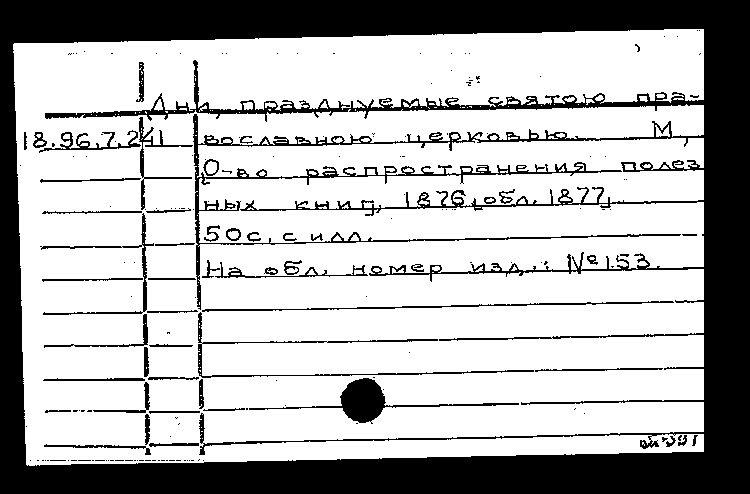 Дни, празднуемые святою пра-
18.96.7.241 вославною церковью. М.,
[О-во распространения полез
ных книг], 1876 [обл. 1877]
50с. с илл.
На обл. номер изд.: №153.